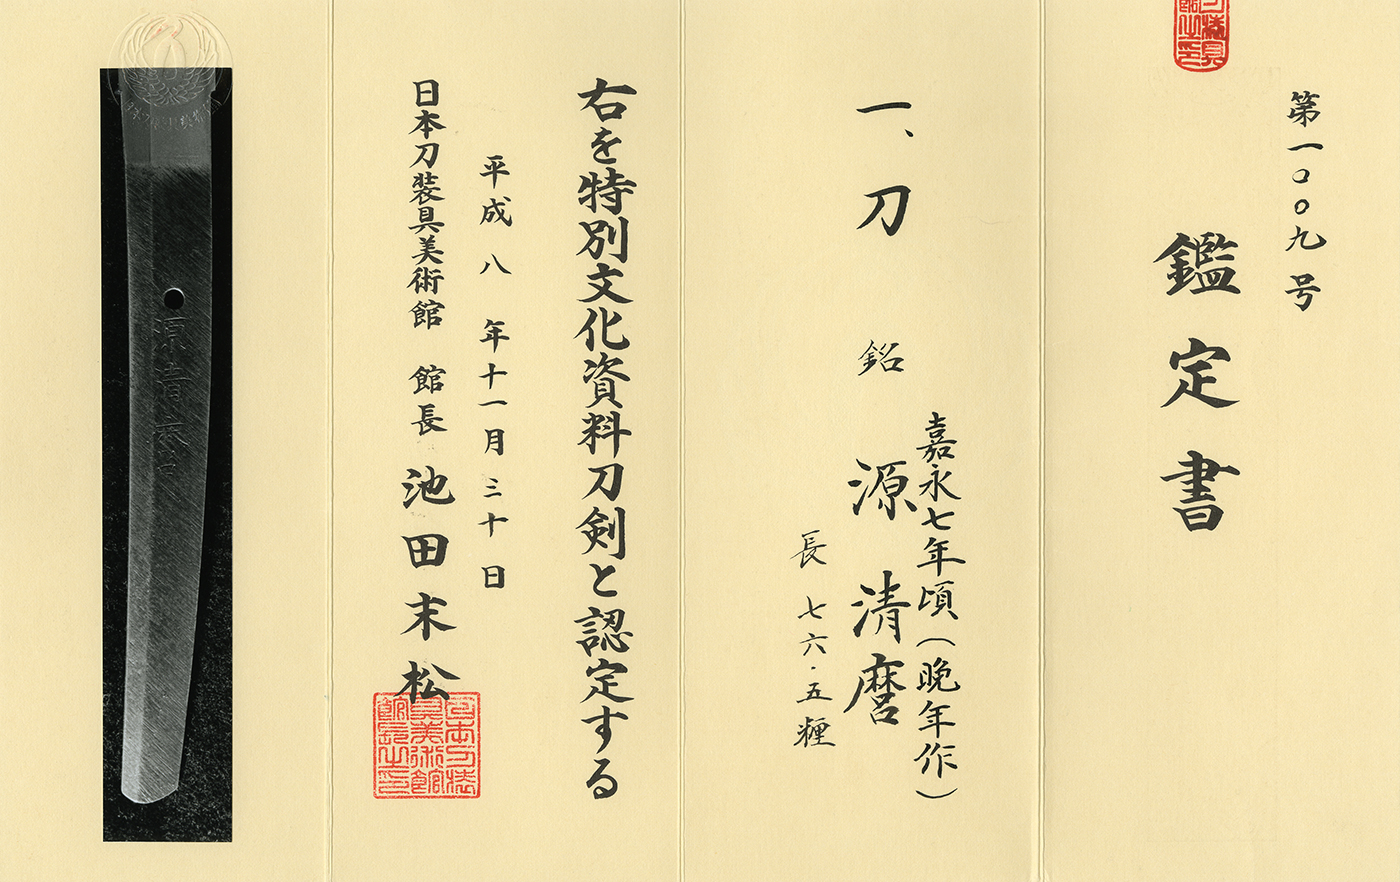 第一〇〇九号
鑑定書
一、刀　銘　源清麿
嘉永七年頃（晩年作）
長　七六・五糎
右を特別文化資料刀剣と認定する
平成八年十一月三十日
日本刀装具美術館　館長　池田末松
日本刀装
具美術館
館長之印
源清麿